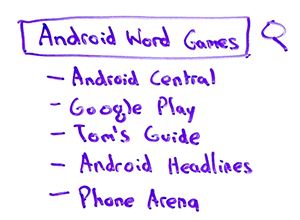 Android Word Games
- Android Central
- Google Play
- Tom's Guide
- Android Headlines
- Phone Arena